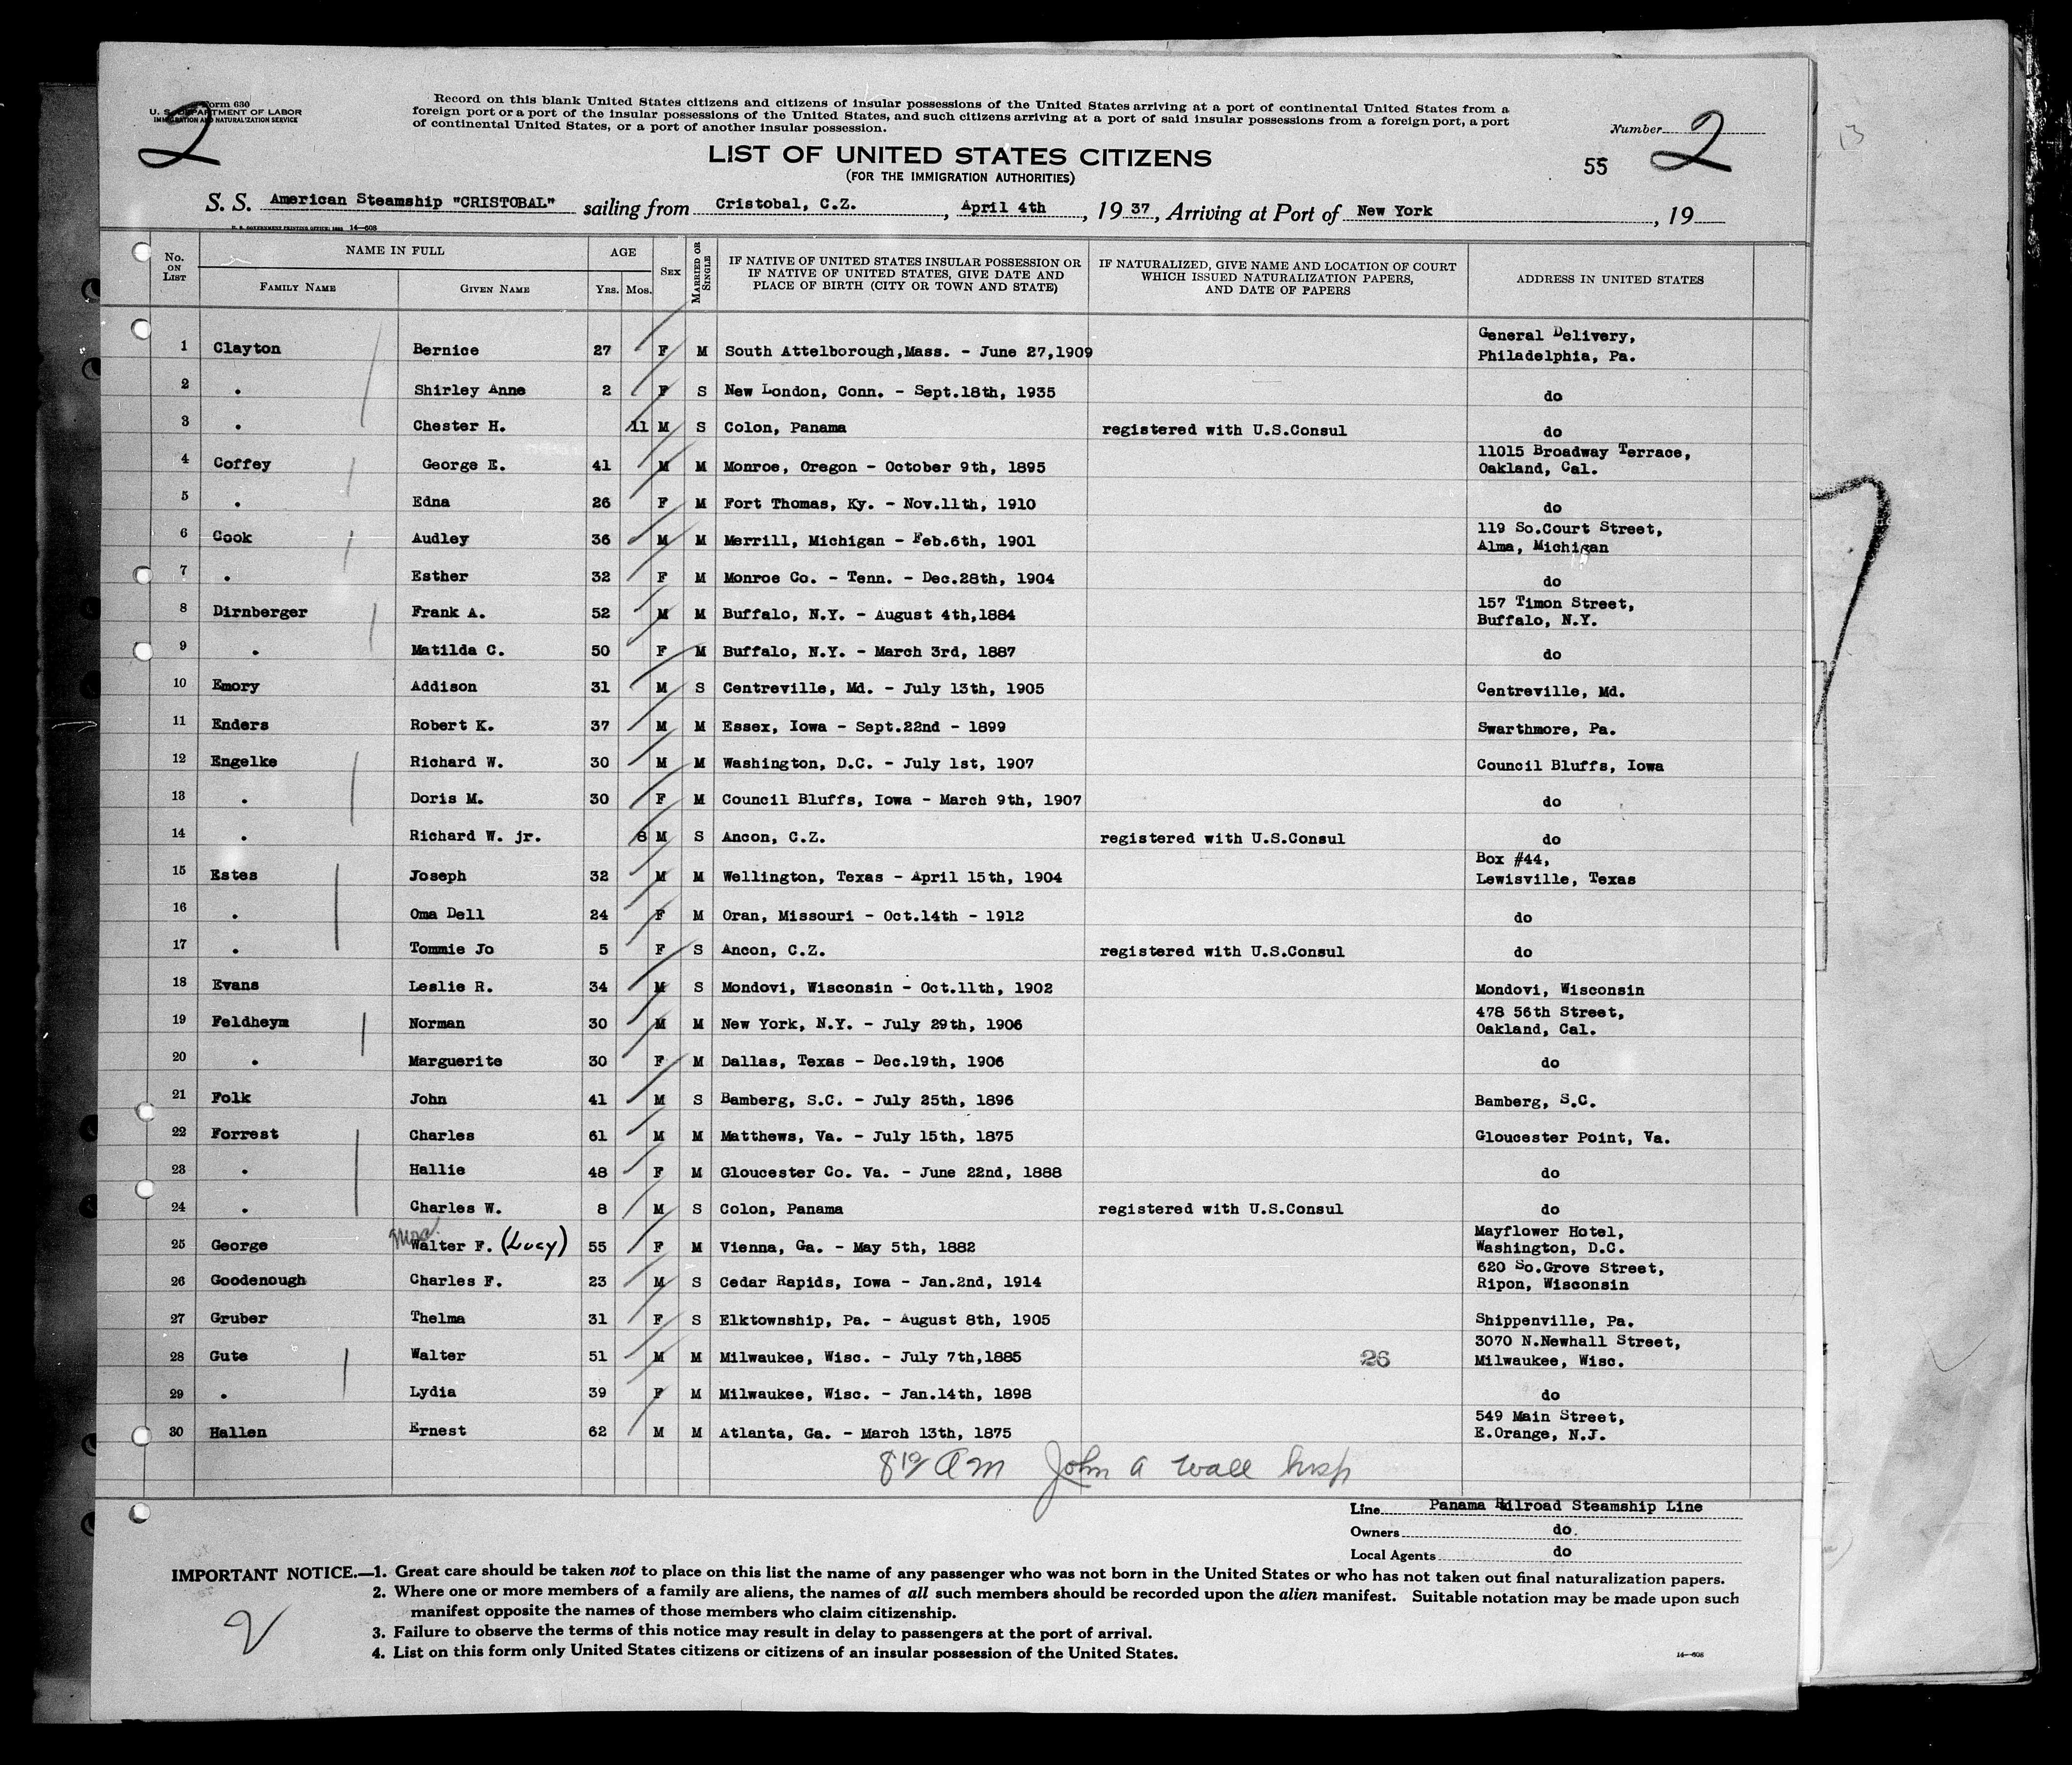 Form 630
U. S. DEPARTMENT OF LABOR
IMMIGRATION AND NATURALIZATION SERVICE
2
Record on this blank United States citizens and citizens of insular possessions of the United States arriving at a port of continental United States from a
foreign port or a port of the insular possessions of the United States, and such citizens arriving at a port of said insular possessions from a foreign port, a port
of continental United States, or a port of another insular possession.
Number 2
LIST OF UNITED STATES CITIZENS
(FOR THE IMMIGRATION AUTHORITIES)
55
S. S. American Steamship "CRISTOBAL" sailing from Cristobal, C.Z. , April 4th , 19 37 , Arriving at Port of New York , 19
U. S. GOVERNMENT PRINTING OFFICE: 14—608
No. ON LIST NAME IN FULL FAMILY NAME GIVEN NAME AGE YRS. MOS. SEX MARRIED OR SINGLE IF NATIVE OF UNITED STATES INSULAR POSSESSION OR IF NATIVE OF UNITED STATES, GIVE DATE AND PLACE OF BIRTH (CITY OR TOWN AND STATE) IF NATURALIZED, GIVE NAME AND LOCATION OF COURT WHICH ISSUED NATURALIZATION PAPERS, AND DATE OF PAPERS ADDRESS IN UNITED STATES
1 Clayton Bernice 27 F M South Attelborough,Mass. - June 27,1909 General Delivery, Philadelphia, Pa.
2 " Shirley Anne 2 F S New London, Conn. - Sept.18th, 1935 do
3 " Chester H. 11 M S Colon, Panama registered with U.S.Consul do
4 Coffey George E. 41 M M Monroe, Oregon - October 9th, 1895 11015 Broadway Terrace, Oakland, Cal.
5 " Edna 26 F M Fort Thomas, Ky. - Nov.11th, 1910 do
6 Cook Audley 36 M M Merrill, Michigan - Feb.6th, 1901 119 So.Court Street, Alma, Michigan
7 " Esther 32 F M Monroe Co. - Tenn. - Dec.28th, 1904 do
8 Dirnberger Frank A. 52 M M Buffalo, N.Y. - August 4th,1884 157 Timon Street, Buffalo, N.Y.
9 " Matilda C. 50 F M Buffalo, N.Y. - March 3rd, 1887 do
10 Emory Addison 31 M S Centreville, Md. - July 13th, 1905 Centreville, Md.
11 Enders Robert K. 37 M M Essex, Iowa - Sept.22nd - 1899 Swarthmore, Pa.
12 Engelke Richard W. 30 M M Washington, D.C. - July 1st, 1907 Council Bluffs, Iowa
13 " Doris M. 30 F M Council Bluffs, Iowa - March 9th, 1907 do
14 " Richard W. jr. 8 M S Ancon, C.Z. registered with U.S.Consul do
15 Estes Joseph 32 M M Wellington, Texas - April 15th, 1904 Box #44, Lewisville, Texas
16 " Oma Dell 24 F M Oran, Missouri - Oct.14th - 1912 do
17 " Tommie Jo 5 F S Ancon, C.Z. registered with U.S.Consul do
18 Evans Leslie R. 34 M S Mondovi, Wisconsin - Oct.11th, 1902 Mondovi, Wisconsin
19 Feldheym Norman 30 M M New York, N.Y. - July 29th, 1906 478 56th Street, Oakland, Cal.
20 " Marguerite 30 F M Dallas, Texas - Dec.19th, 1906 do
21 Folk John 41 M S Bamberg, S.C. - July 25th, 1896 Bamberg, S.C.
22 Forrest Charles 61 M M Matthews, Va. - July 15th, 1875 Gloucester Point, Va.
23 " Hallie 48 F M Gloucester Co. Va. - June 22nd, 1888 do
24 " Charles W. 8 M S Colon, Panama registered with U.S.Consul do
25 George Mrs. Walter F. (Lucy) 55 F M Vienna, Ga. - May 5th, 1882 Mayflower Hotel, Washington, D.C.
26 Goodenough Charles F. 23 M S Cedar Rapids, Iowa - Jan.2nd, 1914 620 So.Grove Street, Ripon, Wisconsin
27 Gruber Thelma 31 F S Elktownship, Pa. - August 8th, 1905 Shippenville, Pa.
28 Gute Walter 51 M M Milwaukee, Wisc. - July 7th,1885 26 3070 N.Newhall Street, Milwaukee, Wisc.
29 " Lydia 39 F M Milwaukee, Wisc. - Jan.14th, 1898 do
30 Hallen Ernest 62 M M Atlanta, Ga. - March 13th, 1875 549 Main Street, E.Orange, N.J.
8 10 AM John A Wall Insp
Line Panama Railroad Steamship Line
Owners do.
Local Agents do
IMPORTANT NOTICE.—1. Great care should be taken not to place on this list the name of any passenger who was not born in the United States or who has not taken out final naturalization papers.
2. Where one or more members of a family are aliens, the names of all such members should be recorded upon the alien manifest. Suitable notation may be made upon such
manifest opposite the names of those members who claim citizenship.
3. Failure to observe the terms of this notice may result in delay to passengers at the port of arrival.
4. List on this form only United States citizens or citizens of an insular possession of the United States.
14—608
2